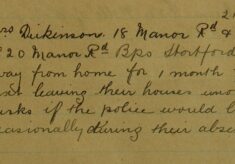 2
rs Dickinson. 18 Manor Rd &
20 Manor Rd Bps Stortford
way from home for 1 month
leaving their houses uno
rks if the police would
casionally during their abse